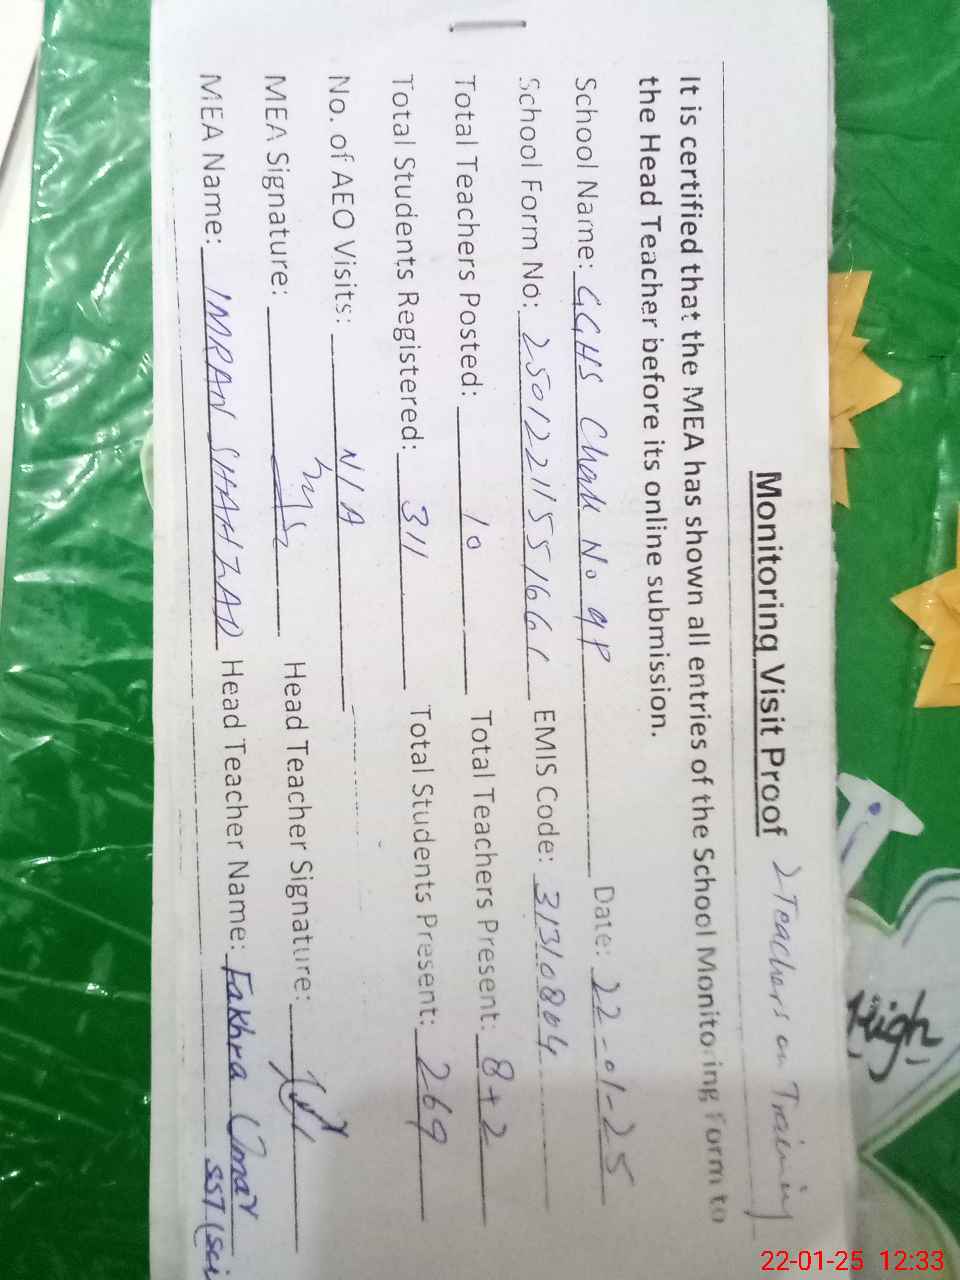 Monitoring Visit Proof 2 Teachers on Training
It is certified that the MEA has shown all entries of the School Monitoring Form to
the Head Teacher before its online submission.
School Name: GGHS Chak No 9P Date: 22-01-25
School Form No: 25012211551661 EMIS Code: 31310804
Total Teachers Posted: 10 Total Teachers Present: 8+2
Total Students Registered: 311 Total Students Present: 269
No. of AEO Visits: N/A
MEA Signature: Head Teacher Signature:
MEA Name: IMRAN SHAHZAD Head Teacher Name: Fakhra Umar
SST (sci
High
22-01-25 12:33